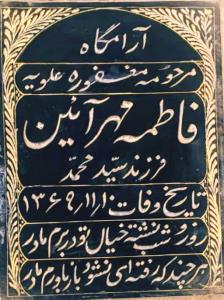 آرامگاه
مرحومه مغفوره علویه
فاطمه مهرآئین
فرزند سید محمد
تاریخ وفات ۱۳۶۹.۱۱.۱
روز و شبست خیال تو دربرم مادر
هرچند که رفته ای نشود باورم مادر